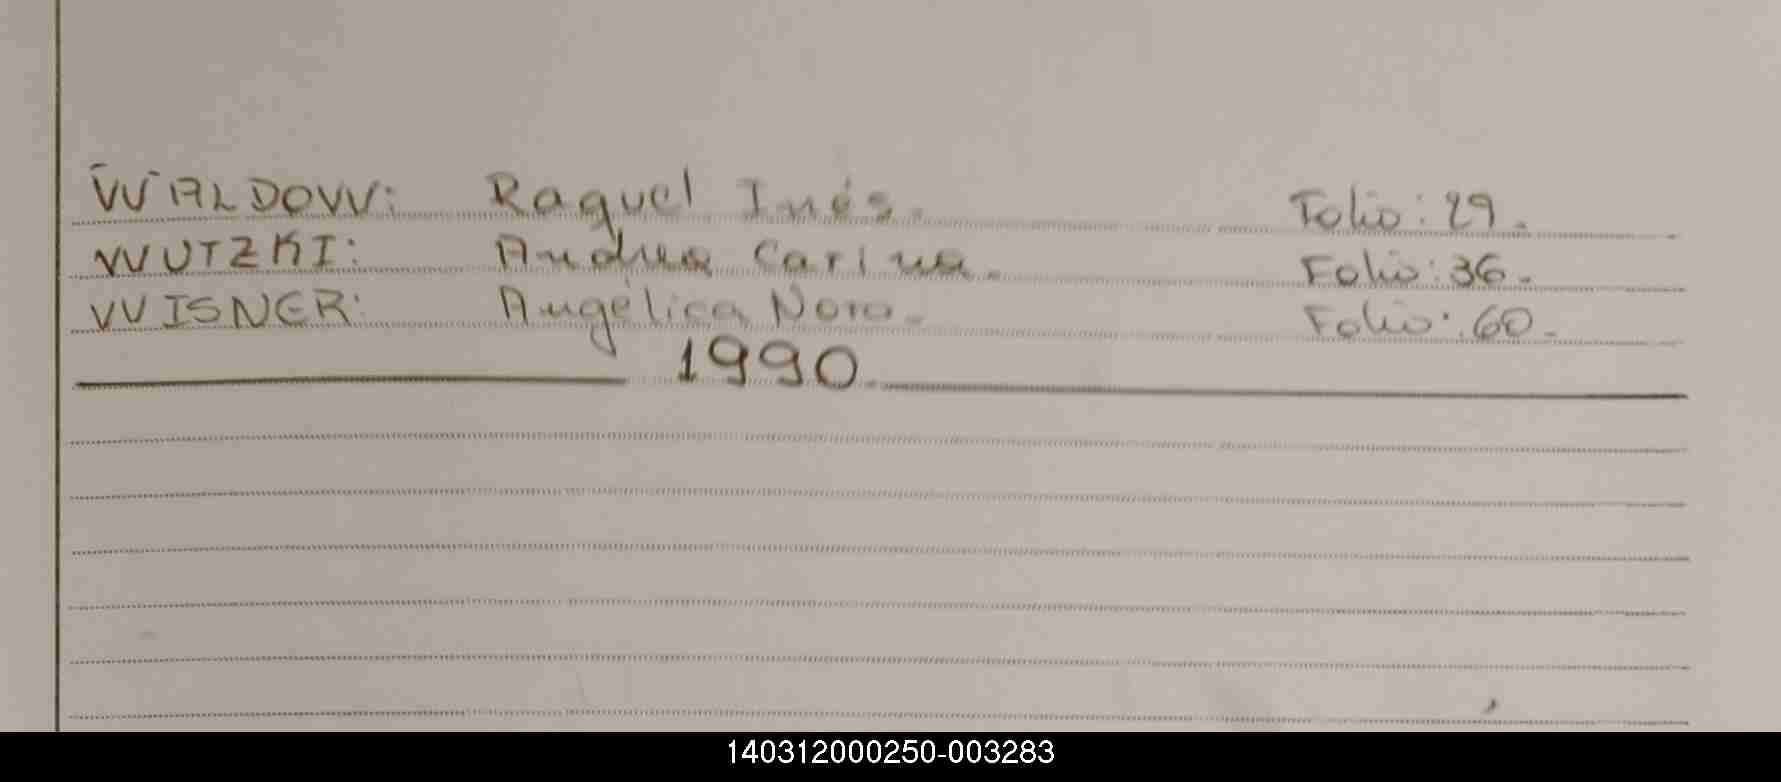 WALDOW: Raquel Inés. Folio: 29.
WUTZKI: Andrea Carina. Folio: 36.
WISNER: Angélica Nora. Folio: 60.
1990
140312000250-003283